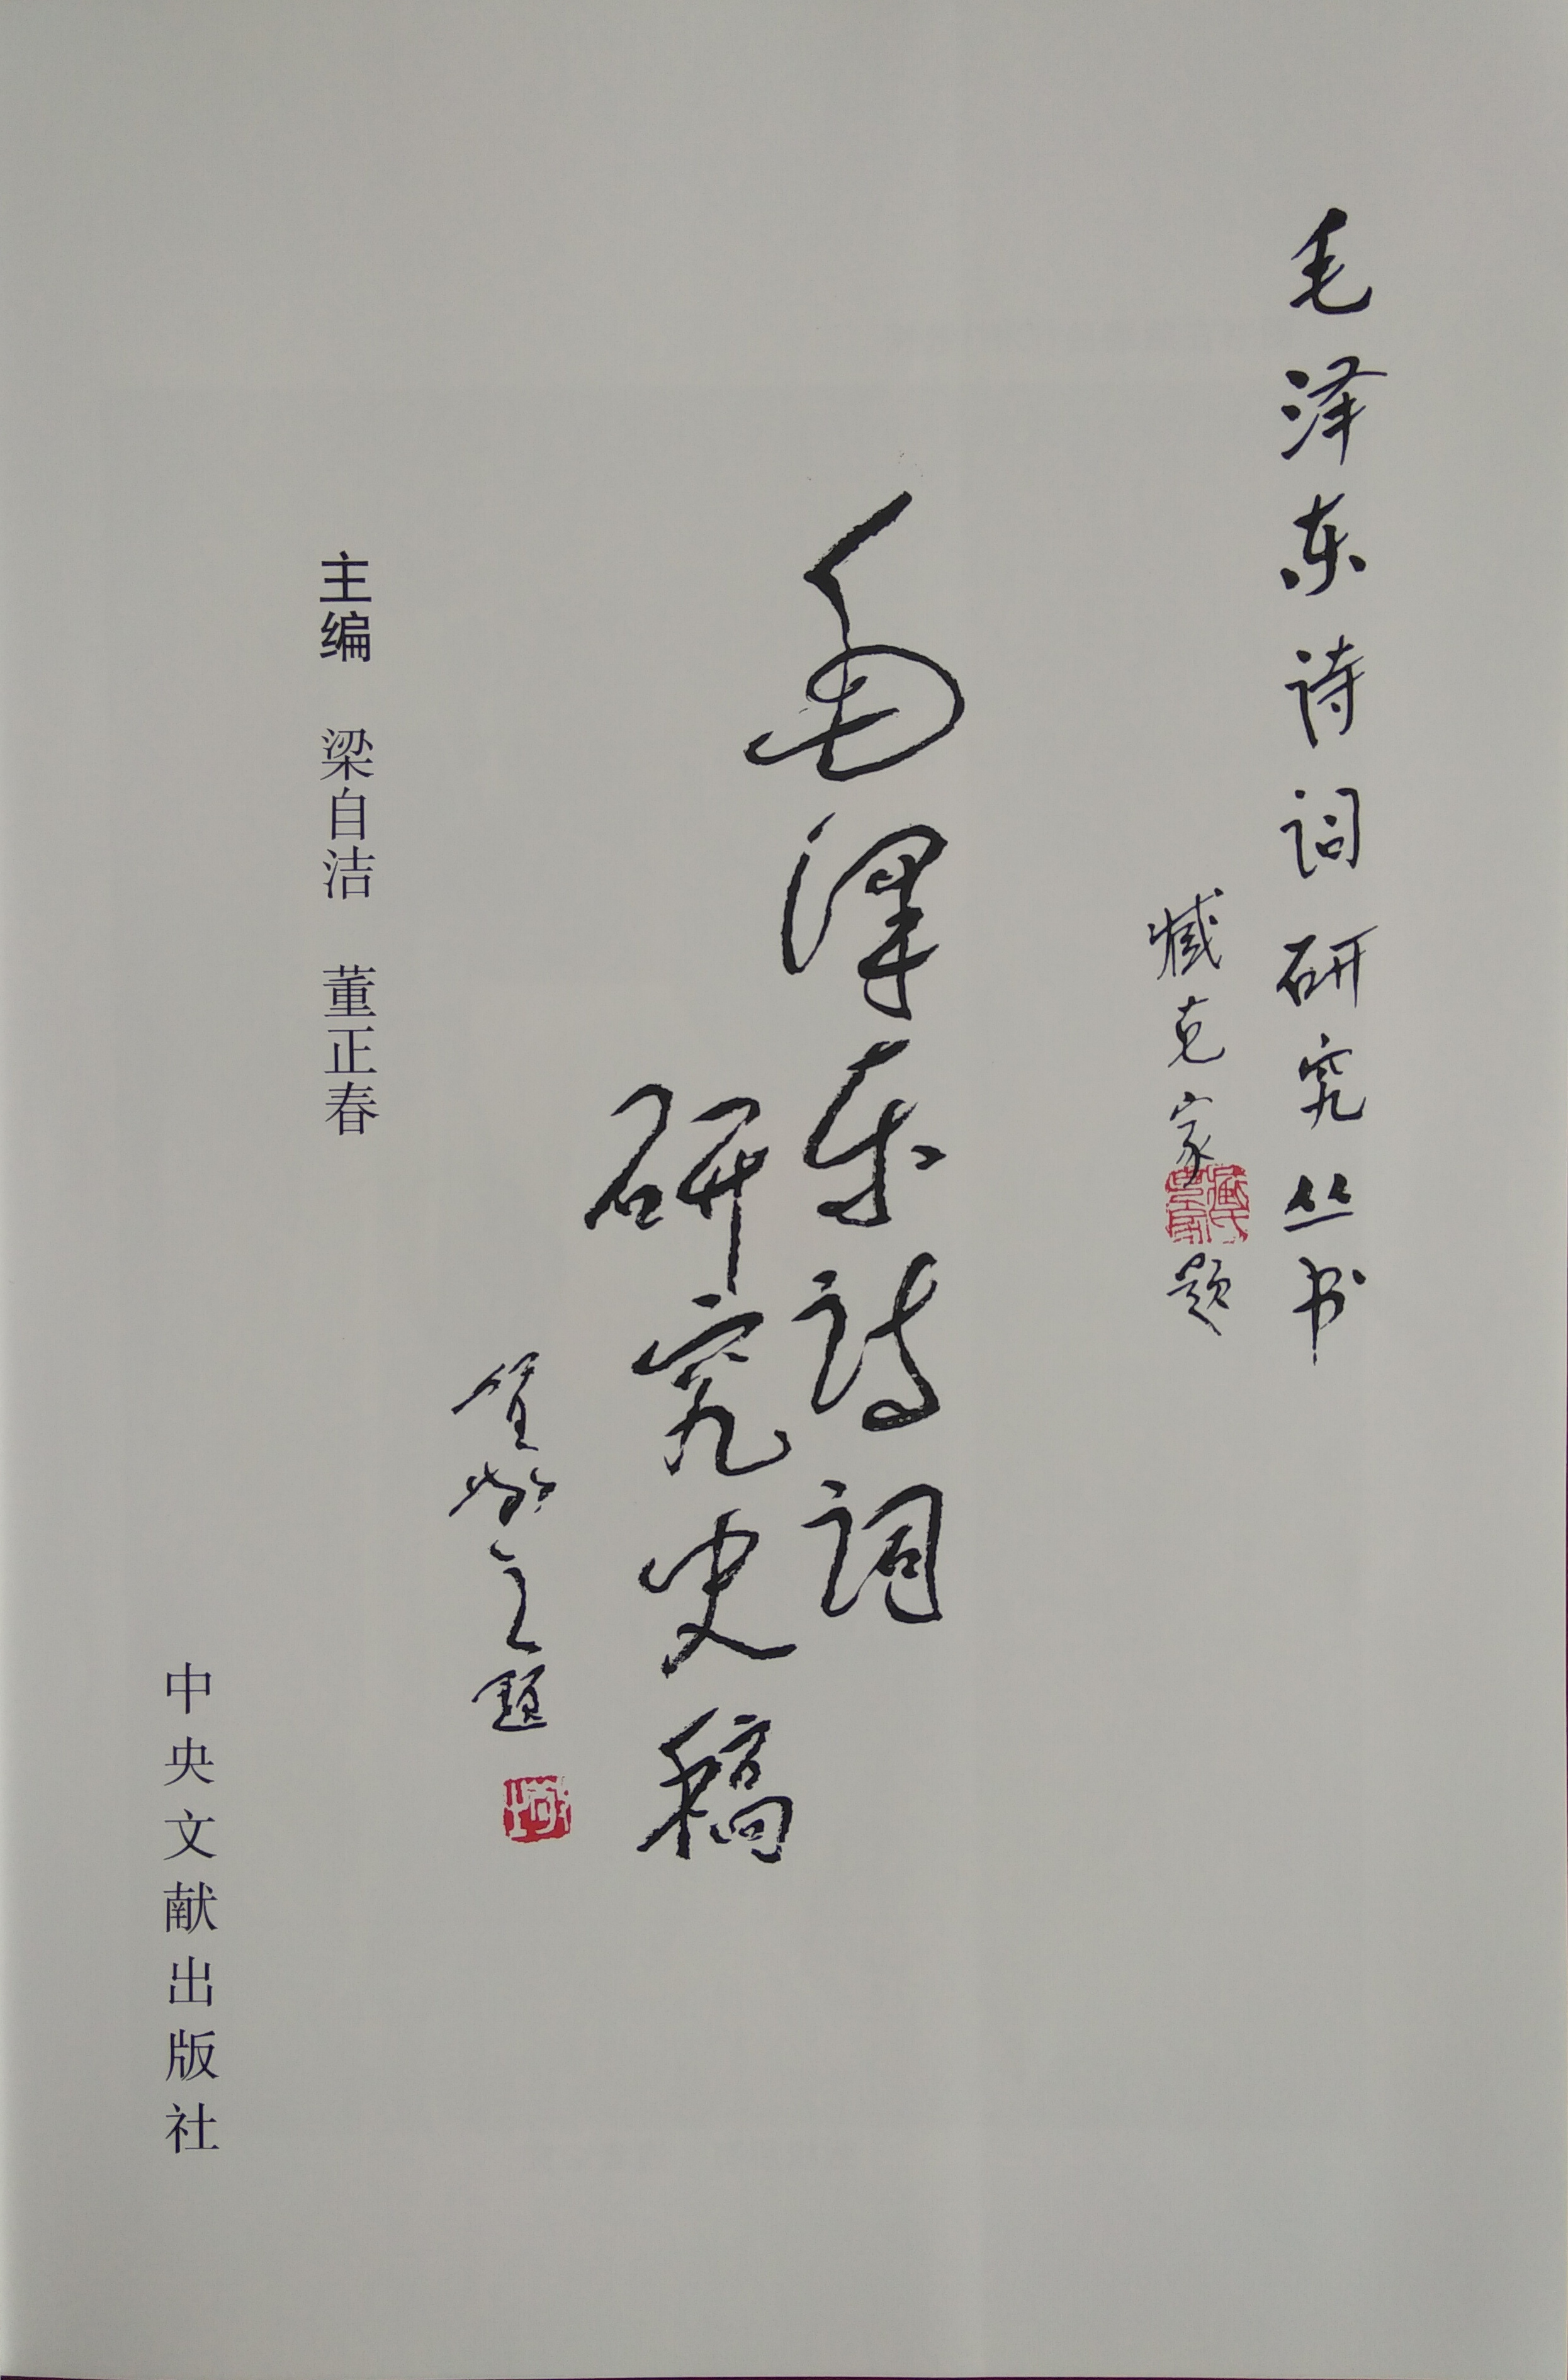 毛泽东诗词研究丛书
臧克家题
毛澤东詩詞
研究史稿
賀敬之题
主编 梁自洁 董正春
中央文献出版社